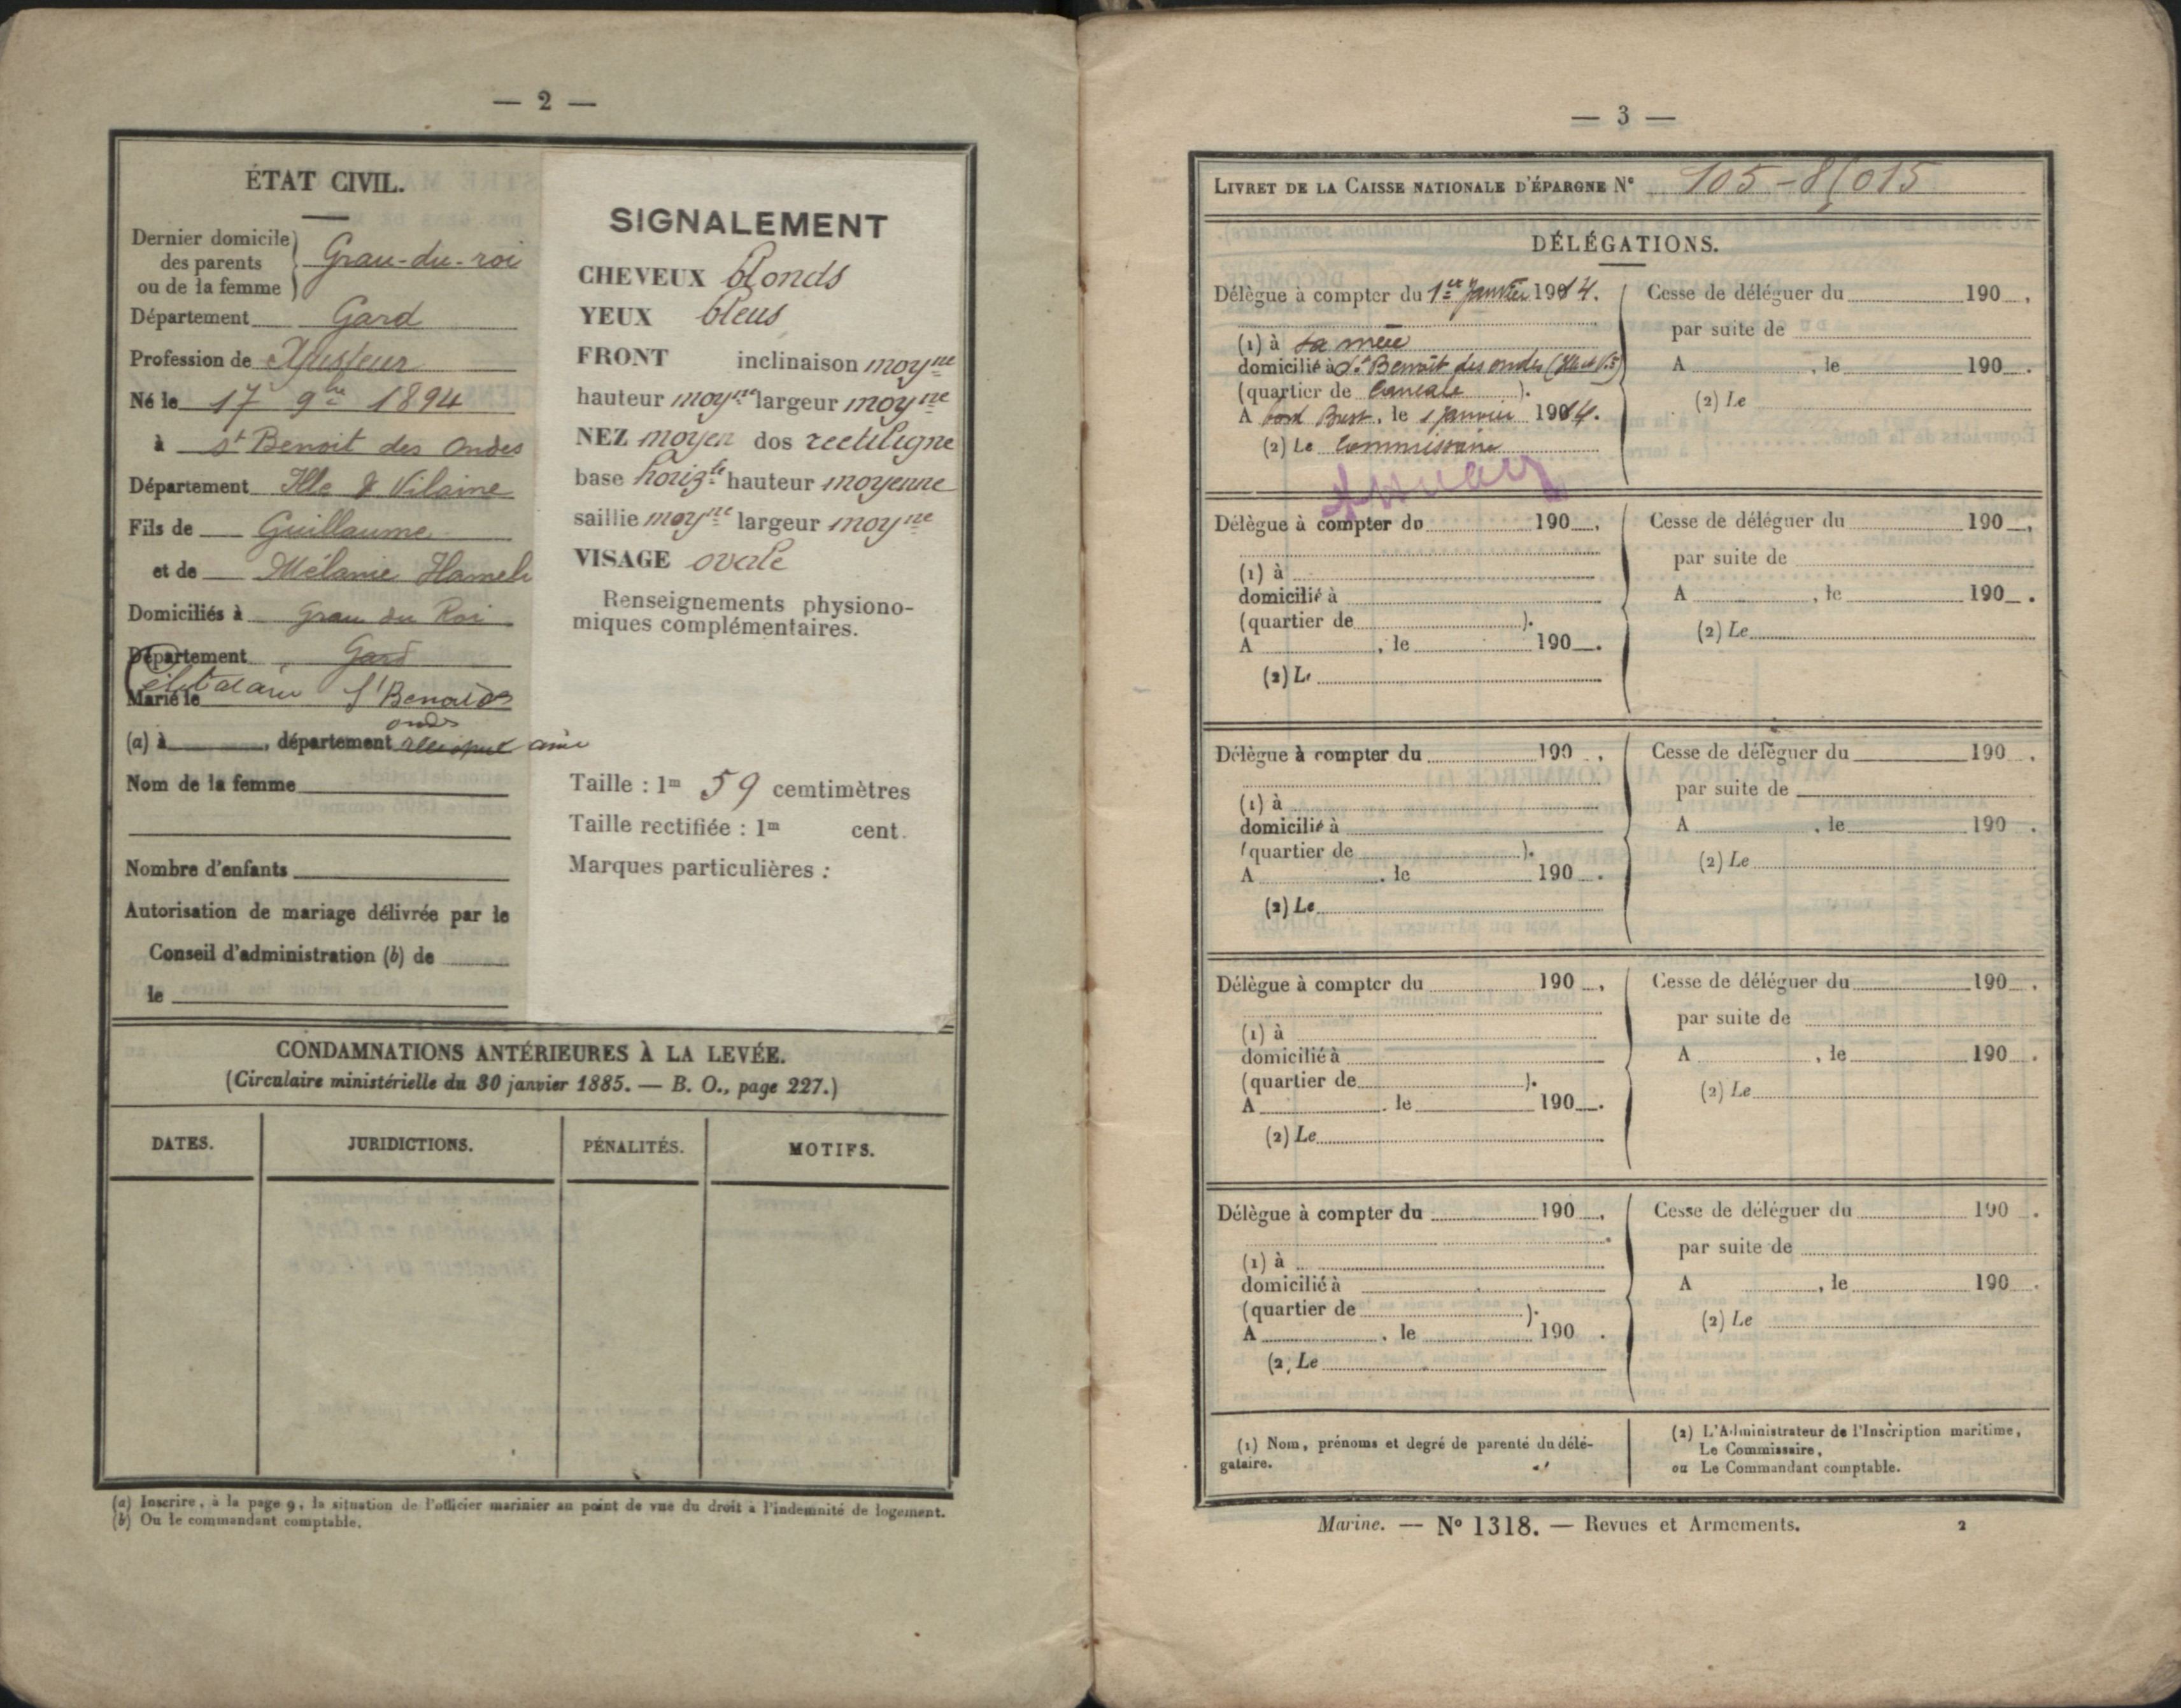 — 2 —
ÉTAT CIVIL.
Dernier domicile
des parents
ou de la femme
Grau-du-roi
Département Gard
Profession de Ajusteur
Né le 17 9bre 1894
à St Benoit des Ondes
Département Ille & Vilaine
Fils de Guillaume
et de Mélanie Hamel
Domiciliés à Grau du Roi
Département Gard
Célibataire St Benoit des
Marié le
ondes
(a) à , département
Nom de la femme
Nombre d'enfants
Autorisation de mariage délivrée par le
Conseil d'administration (b) de
le
SIGNALEMENT
CHEVEUX blonds
YEUX bleus
FRONT inclinaison moyne
hauteur moyne largeur moyne
NEZ moyen dos rectiligne
base horizle hauteur moyenne
saillie moyne largeur moyne
VISAGE ovale
Renseignements physiono-
miques complémentaires.
Taille : 1m 59 cemtimètres
Taille rectifiée : 1m cent.
Marques particulières :
CONDAMNATIONS ANTÉRIEURES À LA LEVÉE.
(Circulaire ministérielle du 30 janvier 1885. — B. O., page 227.)
DATES. JURIDICTIONS. PÉNALITÉS. MOTIFS.
(a) Inscrire, à la page 9, la situation de l'officier marinier au point de vue du droit à l'indemnité de logement.
(b) Ou le commandant comptable.
— 3 —
LIVRET DE LA CAISSE NATIONALE D'ÉPARGNE N° 105-81015
DÉLÉGATIONS.
Délègue à compter du 1er Janvier 1914.
(1) à sa mère
domicilié à St Benoît des ondes (Ille et V.)
(quartier de Cancale ).
A bord Brest, le 1 Janvier 1914.
(2) Le Commissaire
Cesse de déléguer du 190 .
par suite de
A , le 190 .
(2) Le
Délègue à compter du 190 .
(1) à
domicilié à
(quartier de ).
A , le 190 .
(2) Le
Cesse de déléguer du 190 .
par suite de
A , le 190 .
(2) Le
Délègue à compter du 190 .
(1) à
domicilié à
(quartier de ).
A , le 190 .
(2) Le
Cesse de déléguer du 190 .
par suite de
A , le 190 .
(2) Le
Délègue à compter du 190 .
(1) à
domicilié à
(quartier de ).
A , le 190 .
(2) Le
Cesse de déléguer du 190 .
par suite de
A , le 190 .
(2) Le
Délègue à compter du 190 .
(1) à
domicilié à
(quartier de ).
A , le 190 .
(2) Le
Cesse de déléguer du 190 .
par suite de
A , le 190 .
(2) Le
(1) Nom, prénoms et degré de parenté du délé-
gataire.
(2) L'Administrateur de l'Inscription maritime,
Le Commissaire,
ou Le Commandant comptable.
Marine. — N° 1318. — Revues et Armements. 2